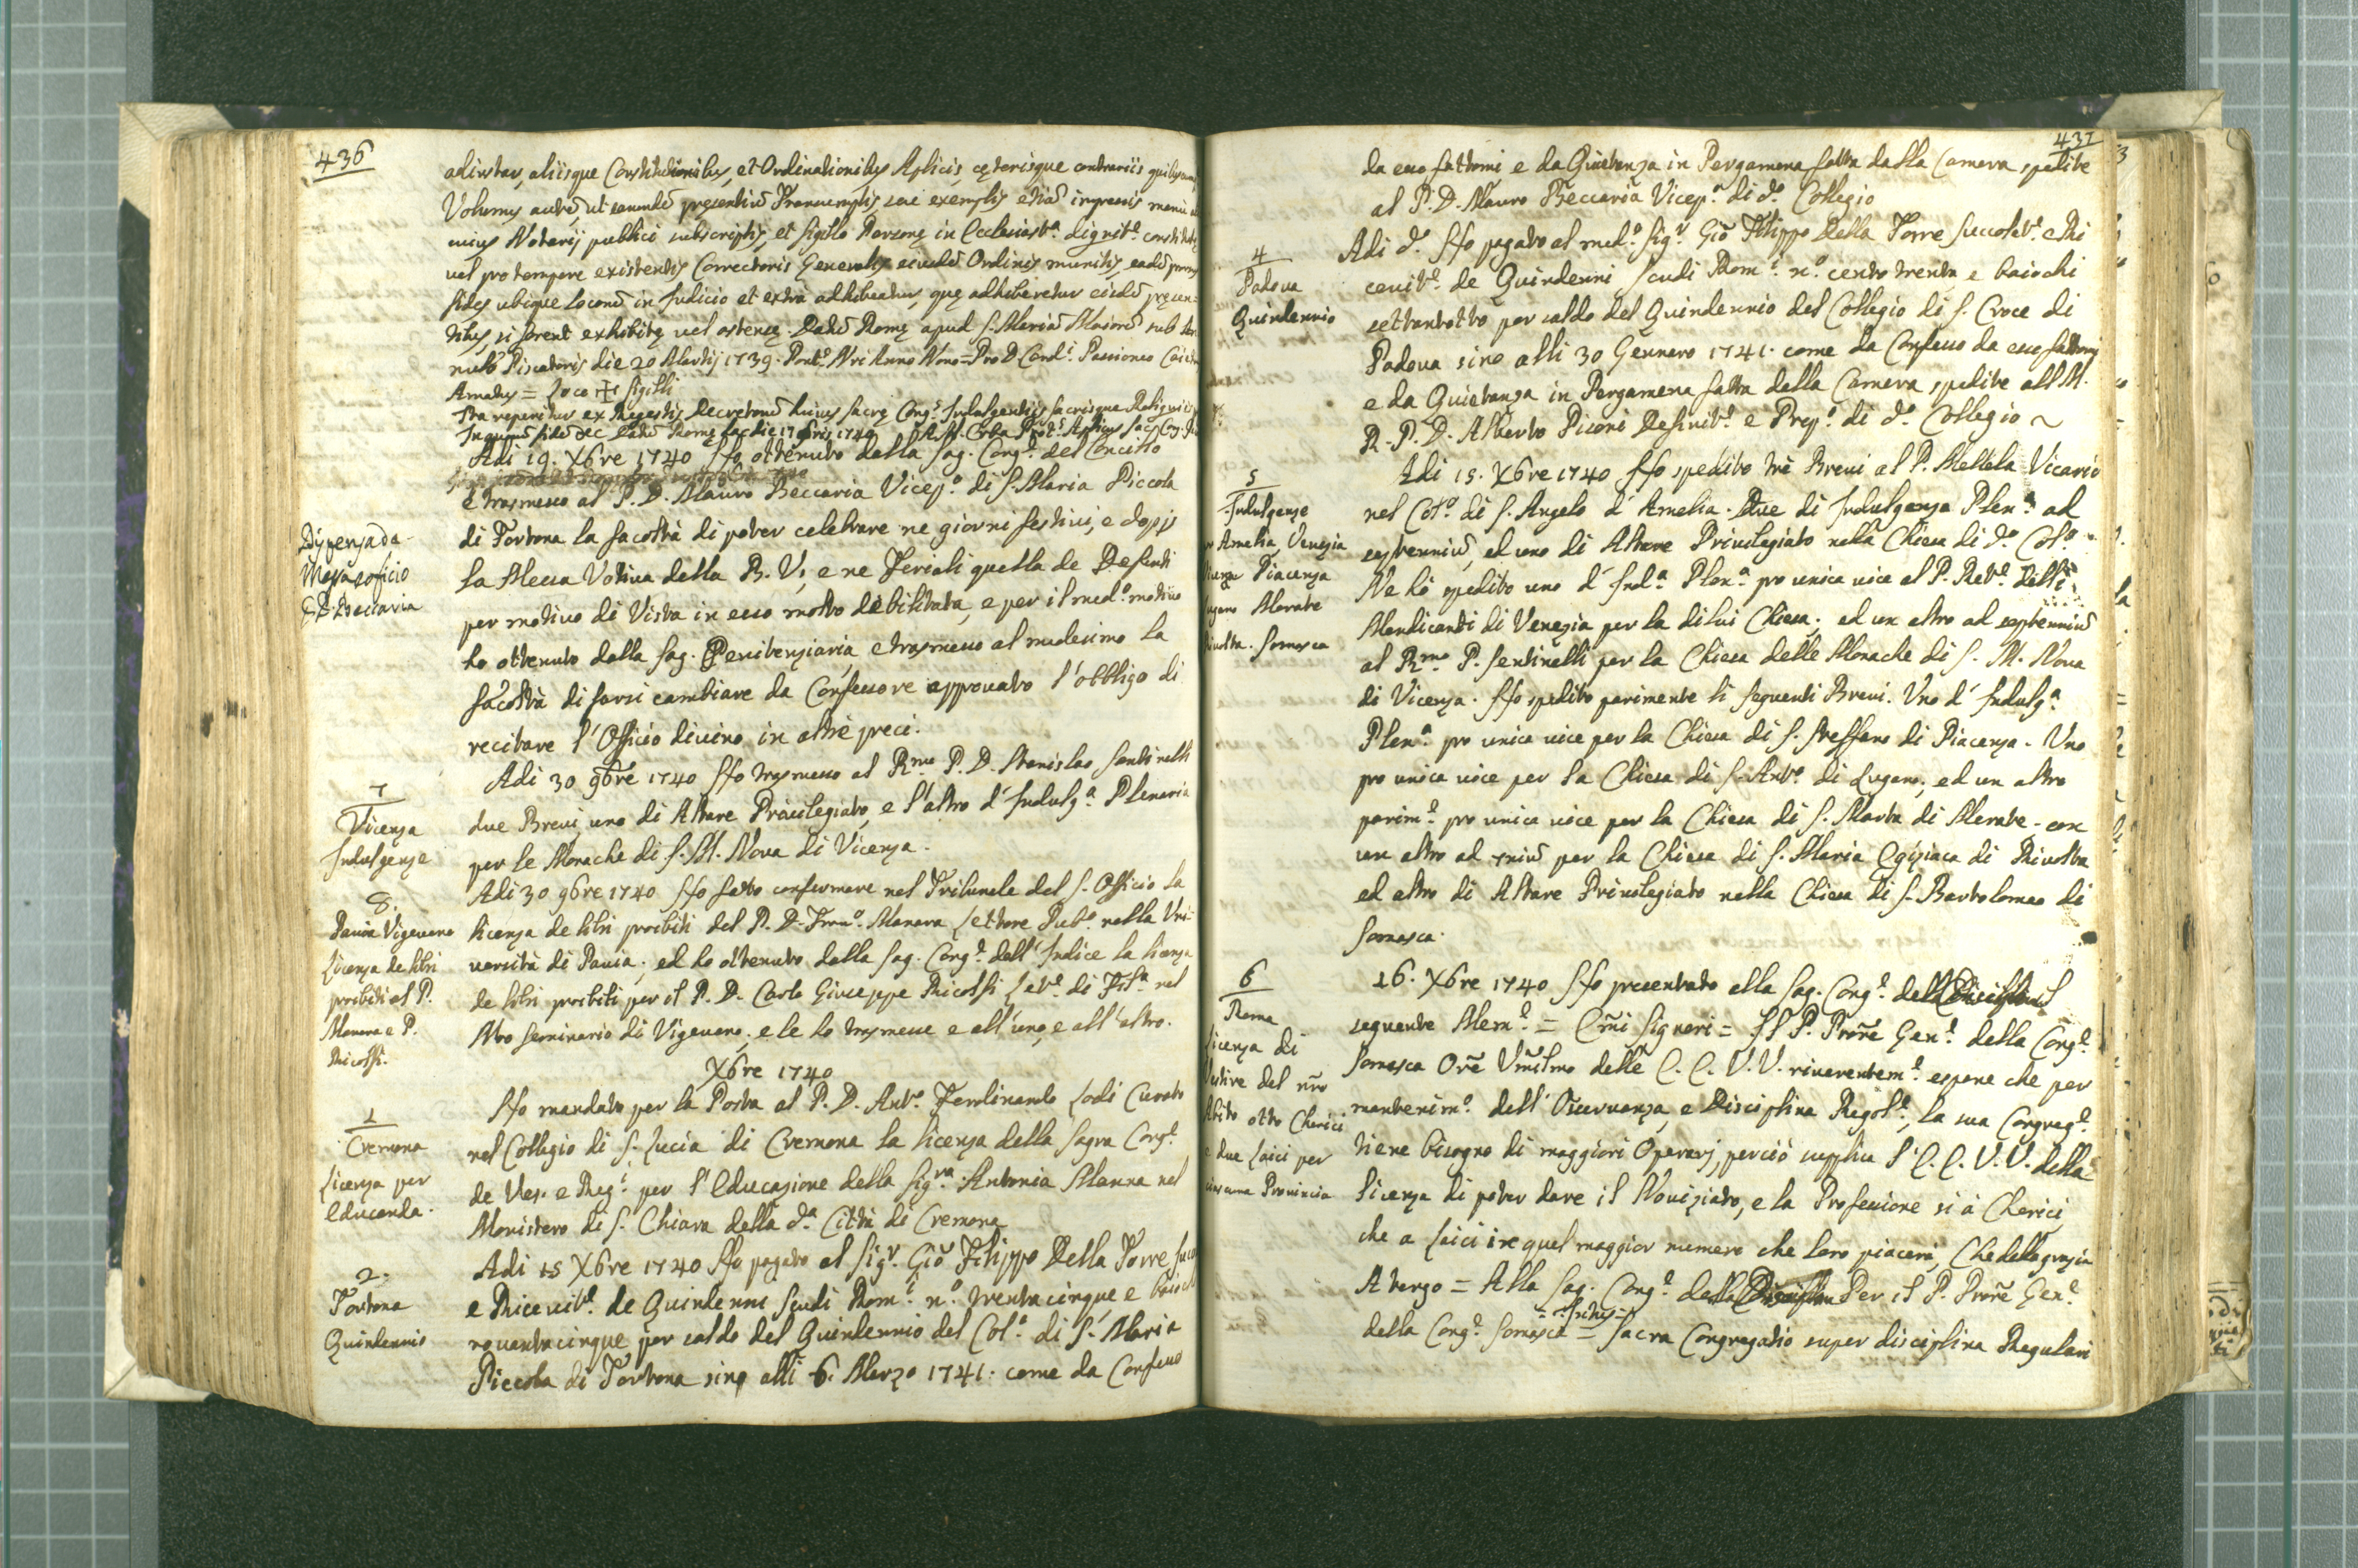 436
adiutar, aliisque Constitutionibus, et Ordinationibus Aplicis, cęterisque contrariis quibuscumq
Volumus autē, ut earumdē pręsentiū Transumptis seu exemplis etiā impressis manu
cuius Notarij publici subscriptis, et sigillo Personę in Ecclesiast.ª dignit.e constitutę
vel pro tempore existentis Correctoris Generalis eiusdē Ordinis munitis, eadē prorsus
fides ubique locorū in Judicio et extra adhibeatur, quę adhiberetur eisdē pręsen=
tibus, si forent exhibitę vel ostensę. Datū Romę apud S. Mariā Maiorē sub An=
nulo Piscatoris die 20 Martij 1739. Pont.s Nri Anno Nono = Pro D. Card.i Passioneo Caietanus
Amatus = Loco ✠ Sigilli
Ita reperitur ex Regestis Decretorū huius Sacrę Cong.s Indulgentijs Sacrisque Reliquijs
In quorū fidē &c Datū Romę hac die 17 9bris 1740
Adi 19. Xbre 1740 Hò ottenuto dalla Sag. Cong.e del Concilio
e trasmesso al P. D. Mauro Beccaria Vicep.o di S. Maria Piccola
Dispensa da
Messa e oficio
P. Beccaria
di Tortona la facoltà di poter celebrare ne giorni festivi, e dopij
la Messa Votiva della B. V., e ne Feriali quella de Defunti
per motivo di Vista in esso molto debilitata, e per il med.o motivo
hò ottenuto dalla Sag. Penitenziaria, e trasmesso al medesimo la
facoltà di farsi cambiare da Confessore approvato l'obbligo di
recitare l'Officio divino in altre preci.
7
Vicenza
Indulgenze
Adi 30 9bre 1740 Hò trasmesso al R.mo P. D. Stanislao Santinelli
due Brevi, uno di Altare Privilegiato, e l'altro d'Indulg.ª Plenaria
per le Monache di S. M. Nova di Vicenza.
8.
Pavia Vigevano
Licenza de libri
proibiti al P.
Manara e P.
Ricolfi.
Adi 30 9bre 1740 Hò fatto confermare nel Tribunale del S. Officio la
licenza de libri proibiti del P. D. Fran.o Manara Lettore Pub.o nella Uni=
versità di Pavia; ed hò ottenuto dalla Sag. Cong.e dell'Indice la licenza
de libri proibiti per il P. D. Carlo Giuseppe Ricolfi Let.e di Fil.ª nel
Nro Seminario di Vigevano; e le hò trasmesse e all'uno, e all'altro.
Xbre 1740
1
Cremona
Licenza per
Educanda.
Hò mandato per la Posta al P. D. Ant.o Ferdinando Lodi Curato
nel Collegio di S. Lucia di Cremona la licenza della Sagra Cong.e
de Ves. e Reg.i per l'Educazione della Sig.ra Antonia Manna nel
Monistero di S. Chiara della d.ª Città di Cremona
2.
Tortona
Quindennio
Adi 15 Xbre 1740 Hò pagato al Sig.r Giō Filippo Della Torre
e Ricevit.e de Quindenni Scudi Rom.i n.o trentacinque e baiochi
novantacinque per saldo del Quindennio del Col.o di S. Maria
Piccola di Tortona sino alli 6. Marzo 1741. come da Confesso
437
da esso fattomi e da Quietanza in Pergamena fatta dalla Camera spedite
al P. D. Mauro Beccaria Vicep.o di d.o Collegio
4
Padova
Quindennio
Adi d.o Hò pagato al med.o Sig.r Giō Filippo Della Torre Succolet.e e Ri
cevit.e de Quindenni Scudi Rom.i n.o cento trenta e baiochi
settantotto per saldo del Quindennio del Collegio di S. Croce di
Padova sino alli 30 Gennaro 1741. come da Confesso da esso fattomi
e da Quietanza in Pergamena fatta dalla Camera spedite all M.
R. P. D. Alberto Pisoni Definit.e e Prep.o di d.o Collegio ~
5
Indulgenze
Amelia, Venezia
Vicenza Piacenza
Lugano Merate
Rivolta. Somasca
Adi 15. Xbre 1740 Hò spedito trè Brevi al P. Mellela Vicario
nel Col.o di S. Angelo d'Amelia. Due di Indulgenza Plen.ª ad
septenniū, ed uno di Altare Privilegiato nella Chiesa di d.o Col.o
Ne hò spedito uno d'Ind.ª Plen.ª pro unica vice al P. Ret.e delli
Mendicanti di Venezia per la di lui Chiesa; ed un altro ad septenniū
al R.mo P. Santinelli per la Chiesa delle Monache di S. M. Nova
di Vicenza. Hò spedito parimente li seguenti Brevi. Uno d'Indulg.ª
Plen.ª pro unica vice per la Chiesa di S. Steffano di Piacenza. Uno
pro unica vice per la Chiesa di S. Ant.o di Lugano; ed un altro
parim.e pro unica vice per la Chiesa di S. Marta di Merate. con
un altro ad 7niū per la Chiesa di S. Maria Egiziaca di Rivolta
ed altro di Altare Privilegiato nella Chiesa di S. Bartolomeo di
Somasca.
6
Roma
Licenza di
Vestire del nrō
Abito otto Cherici
e due Laici per
ciascuna Provincia
16. Xbre 1740 Hò presentato alla Sag. Cong.e della Disciplina il
seguente Mem.e = Emi Signori = Il P. Prorē Gen.e della Cong.e
Somasca Orē Umīlmo delle E. E. V. V. riverentem.e espone che per
mantenim.o dell'Osservanza, e Disciplina Regol.e, la sua Congreg.e
tiene bisogno di maggiori Operarj, perciò supplica l'E. E. V. V. della
licenza di poter dare il Noviziato, e la Professione si à Cherici,
che a Laici in quel maggior numero che loro piacerà, Che della grazia
A tergo = Alla Sag. Cong.e della Disciplina Per il P. Prorē Gen.e
= Intus =
della Cong.e Somasca = Sacra Congregatio super disciplina Regulari